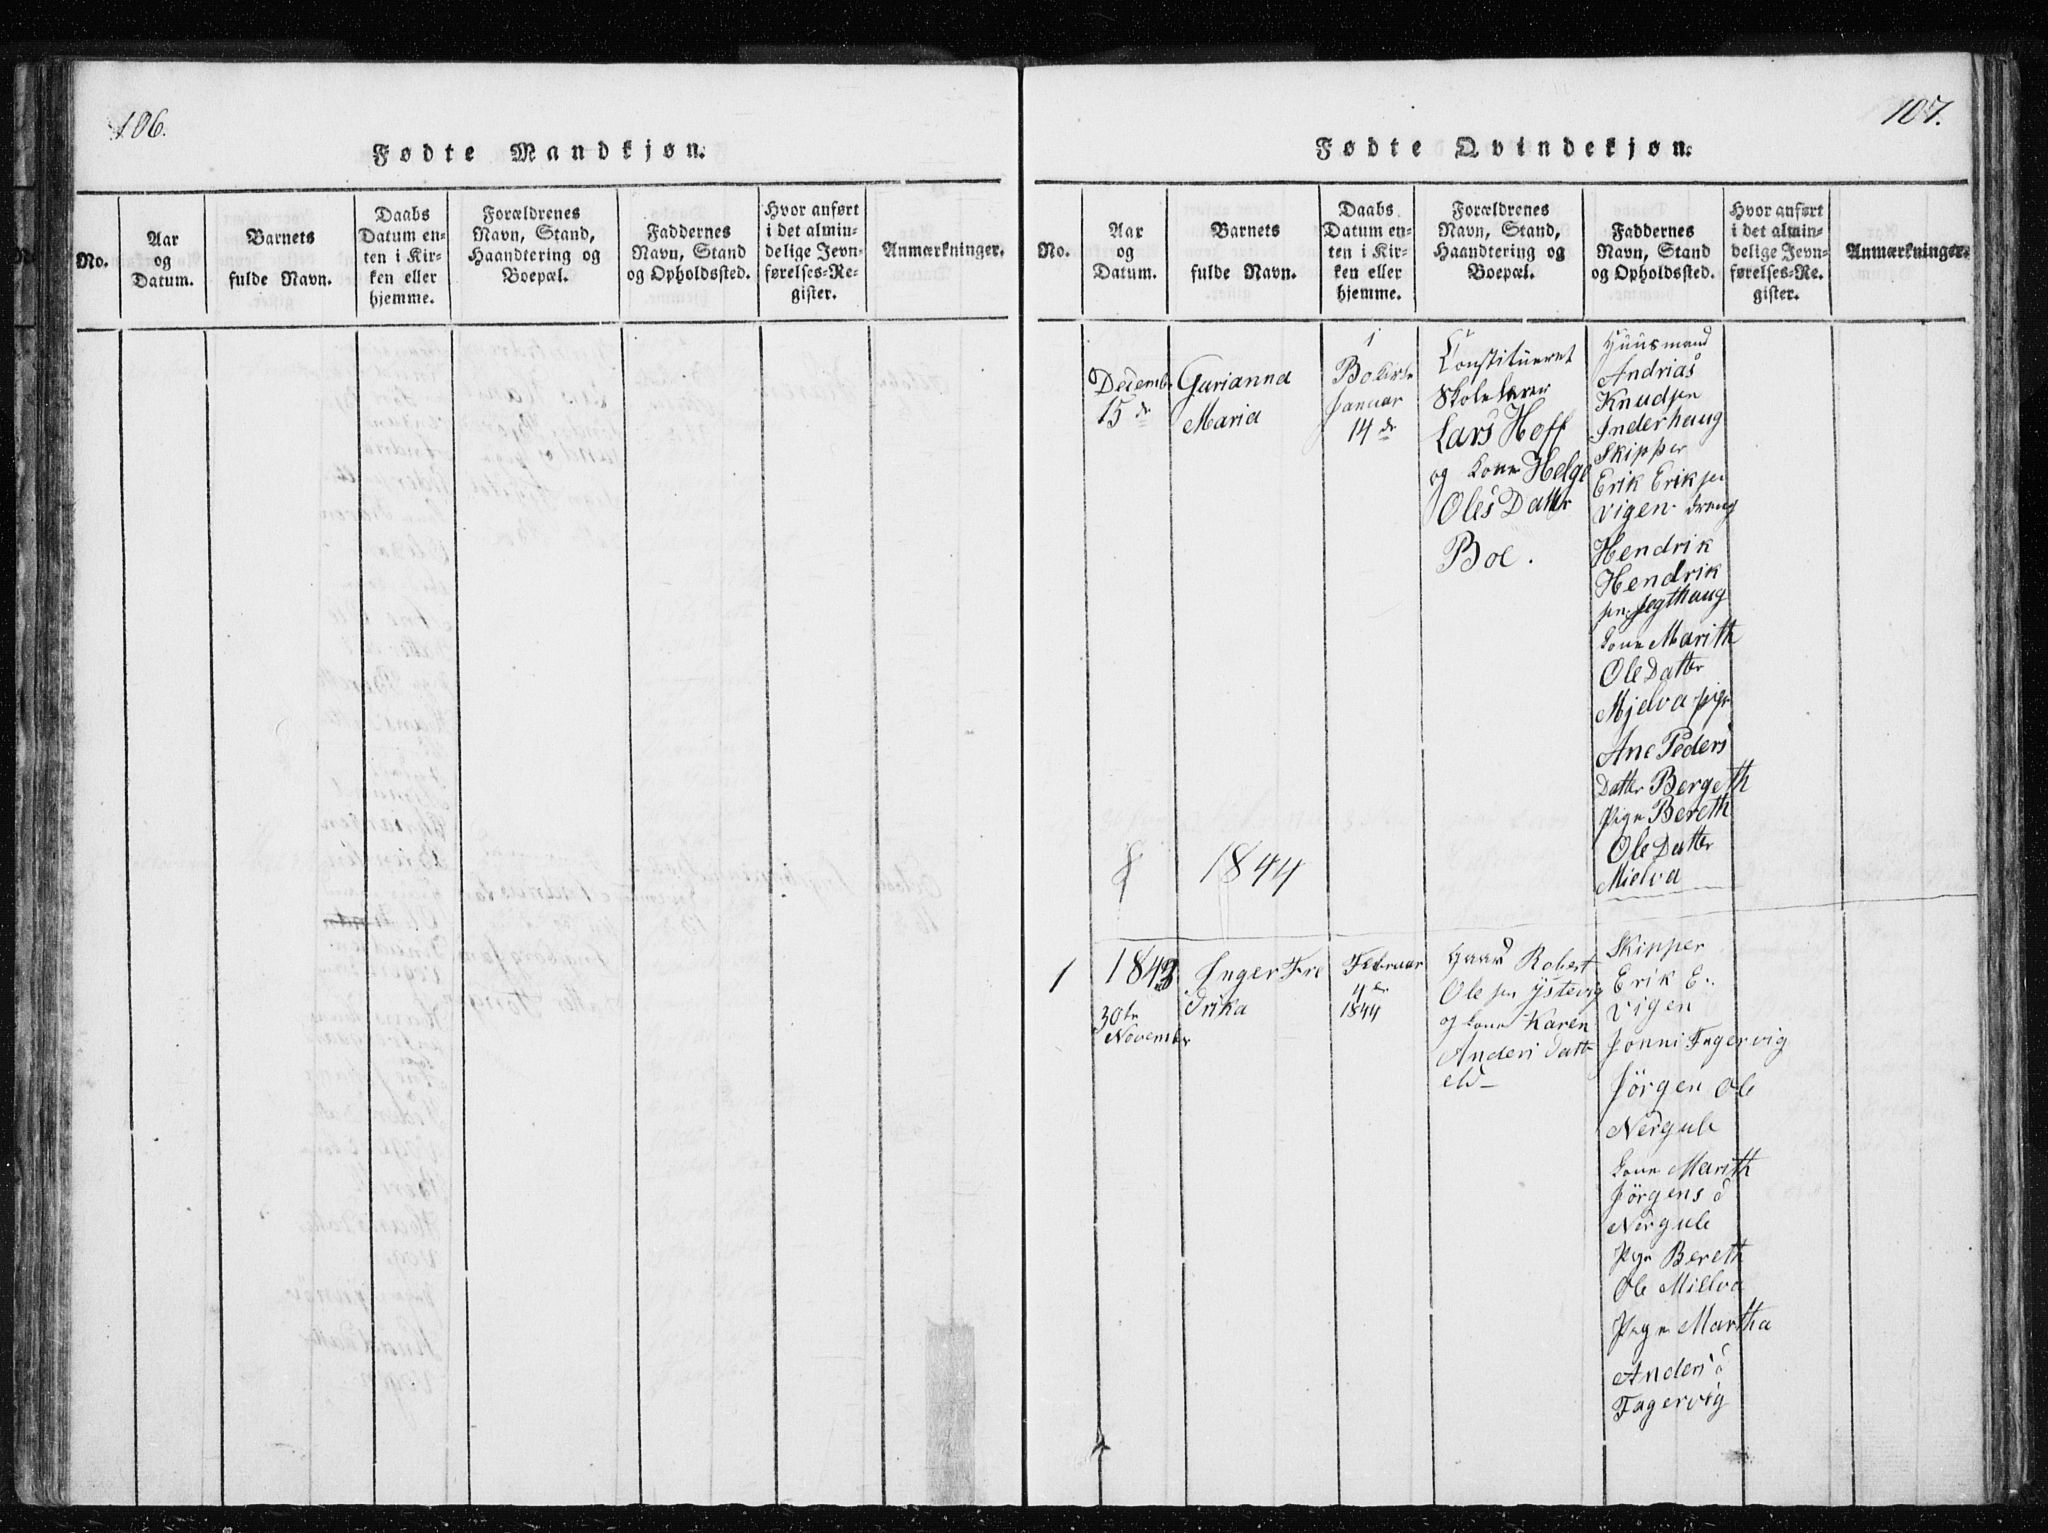 106.
Fødte Mandkjøn.
No.
Aar
og
Datum.
Barnets
fulde Navn.
Daabs
Datum en-
ten i Kir-
ken eller
hjemme.
Forældrenes
Navn, Stand,
Haandtering og
Boepæl.
Faddernes
Navn, Stand
og Opholdssted.
Hvor anført
i det almin-
delige Jevn-
førelses-Re-
gister.
Anmærkninger.
107.
Fødte Qvindekjøn.
No.
Aar
og
Datum.
Barnets
fulde Navn.
Daabs
Datum en-
ten i Kir-
ken eller
hjemme.
Forældrenes
Navn, Stand,
Haandtering og
Boepæl.
Faddernes
Navn, Stand
og Opholdssted.
Hvor anført
i det almin-
delige Jevn-
førelses-Re-
gister.
Anmærkninger.
Decembr
15 de
Gurianna
Maria
i
Bokirke
Januar
14 de
Constitueret
Skolelærer
Lars Hoff
og kone Helge
Oles Datter
Boe.
Huusmand
Andrias
Knudsen
Inderhaug
Skipper
Erik Eriksen
Vigen dreng
Hendrik
Hendrik
sen Jegthaug
kone Marith
Ole Datter
Mjelva pige
Ane Peders
Datter Bergeth
Pige Bereth
Ole Datter
Mielva
1844
1
1843
30te
November
Inger Fre
drika
Februar
4 de
1844
Gaard Robert
Olesen Ystevig
og kone Karen
Anders Datt
eld
Skipper
Erik E.
Vigen
Jonni Fagervig
Jörgen Ole
Nergule
kone Marith
Jörgens d
Nergule
Pige Bereth
Ole Mielva
Pige Martha
Anders d
Fagervig